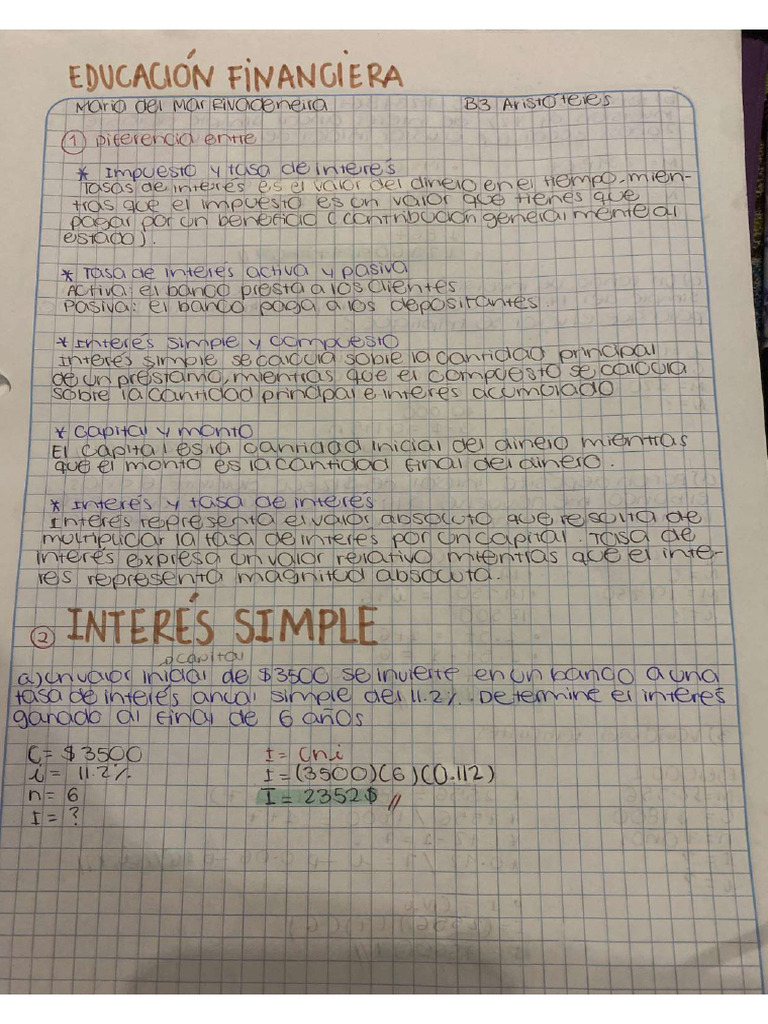 EDUCACIÓN FINANCIERA
Maria del Mar Rivadeneira B3 Aristóteles
① Diferencia entre
* Impuesto y tasa de interés
Tasas de interés es el valor del dinero en el tiempo, mien-
tras que el impuesto es un valor que tienes que
pagar por un beneficio (contribución generalmente al
estado).
* Tasa de interés activa y pasiva
Activa: el banco presta a los clientes
Pasiva: el banco paga a los depositantes.
* Interés simple y compuesto
Interés simple se calcula sobre la cantidad principal
de un préstamo, mientras que el compuesto se calcula
sobre la cantidad principal e interés acumulado
* Capital y monto
El capital es la cantidad inicial del dinero mientras
que el monto es la cantidad final del dinero.
* Interés y tasa de interés
Interés representa el valor absoluto que resulta de
multiplicar la tasa de interes por un capital. Tasa de
interés expresa un valor relativo mientras que el inte-
res representa magnitud absoluta.
② INTERÉS SIMPLE
capital
a) Un valor inicial de $3500 se invierte en un banco a una
tasa de interés anual simple del 11.2%. Determine el interés
ganado al final de 6 años
C= $3500 I= Cni
i= 11.2% I=(3500)(6)(0.112)
n= 6 I= 2352$ //
I= ?